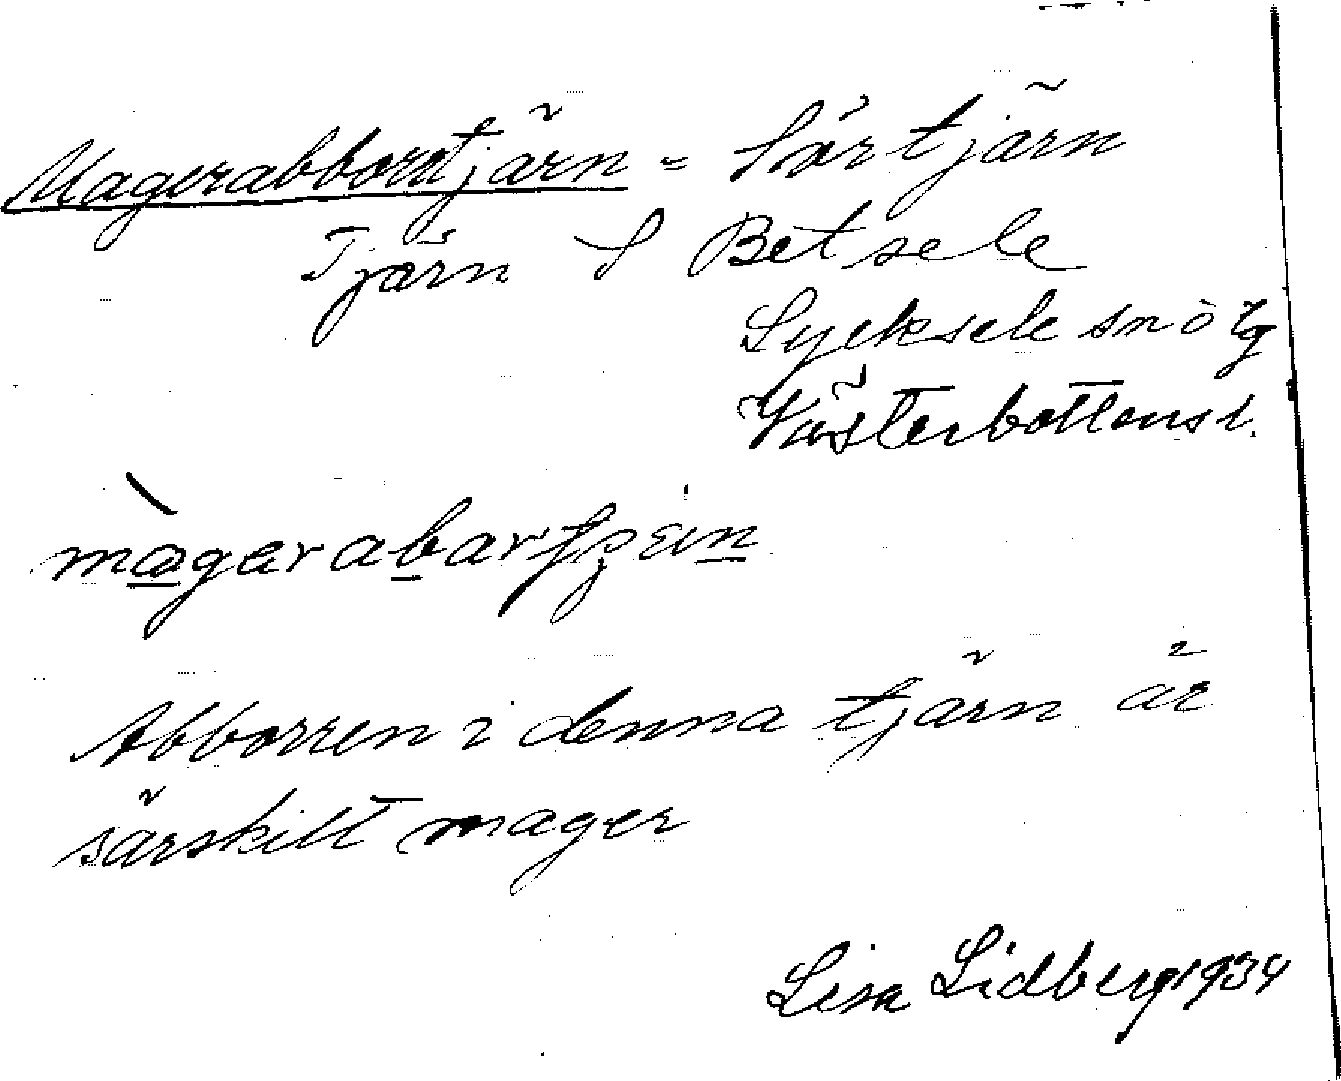 Magerabborrtjärn = Sörtjärn
Tjärn S Betsele
Lycksele sn ö
Västerbottens l.
Abborren i denna tjärn är
särskilt mager
Lisa Lidberg 1934